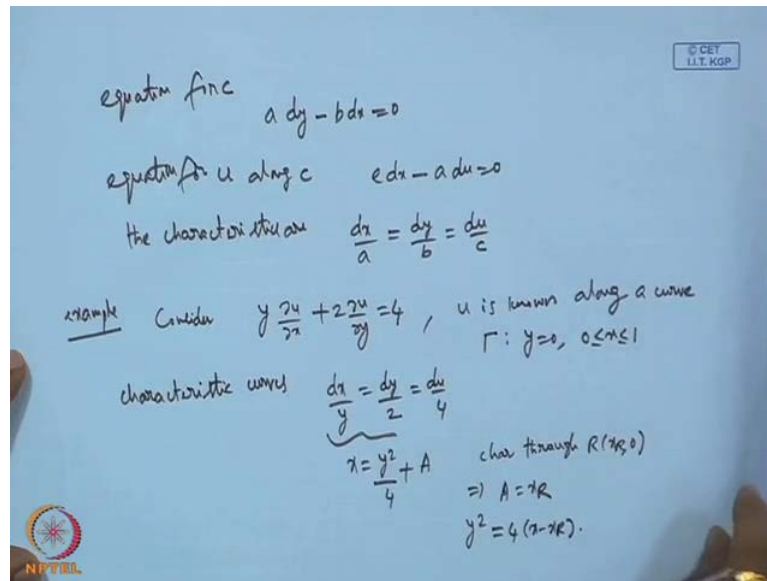 © CET
I.I.T. KGP
equation for c
a dy - b dx = 0
equation for u along c   c dx - a du = 0
the characteristics are   dx/a = dy/b = du/c
example   Consider   y ∂u/∂x + 2 ∂u/∂y = 4 , u is known along a curve
Γ : y=0, 0≤x≤1
characteristic curves   dx/y = dy/2 = du/4
x = y²/4 + A   char through R(xR,0)
⇒ A = xR
y² = 4(x-xR).
NPTEL